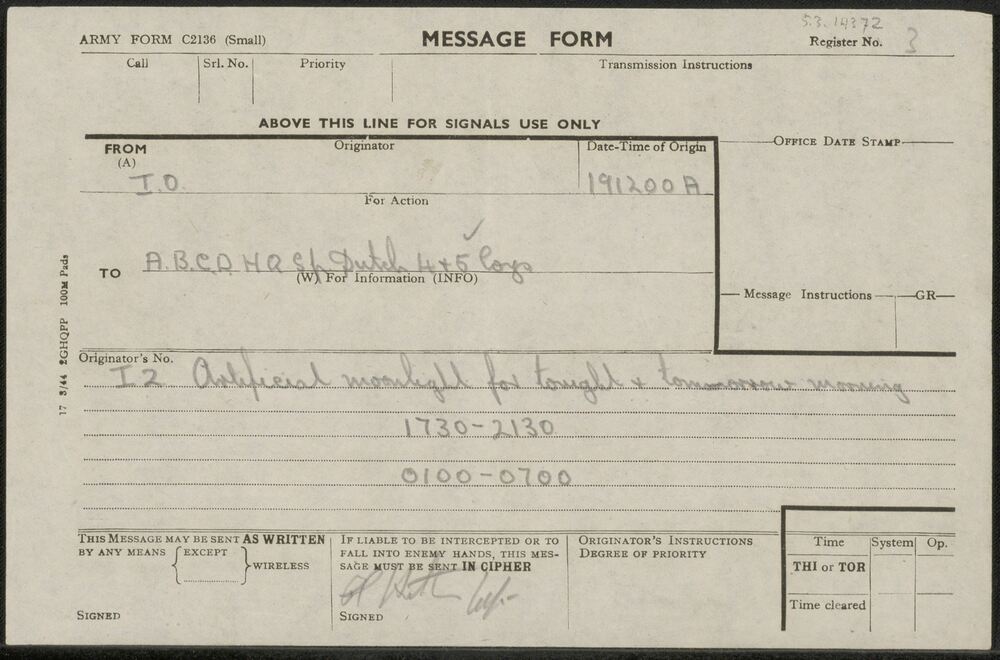 53.14372
ARMY FORM C2136 (Small)
MESSAGE FORM
Register No. 3
Call
Srl. No.
Priority
Transmission Instructions
ABOVE THIS LINE FOR SIGNALS USE ONLY
FROM
(A)
Originator
Date-Time of Origin
OFFICE DATE STAMP
I.O.
191200A
For Action
TO
A.B.C.D. HQ Sp Dutch 4 + 5 Coys
(W) For Information (INFO)
Message Instructions
GR
17 3/44 2GHQPP 100M Pads
Originator's No.
I2 Artificial moonlight for tonight + tomorrow morning
1730-2130
0100-0700
THIS MESSAGE MAY BE SENT AS WRITTEN
BY ANY MEANS
EXCEPT
WIRELESS
SIGNED
IF LIABLE TO BE INTERCEPTED OR TO
FALL INTO ENEMY HANDS, THIS MES-
SAGE MUST BE SENT IN CIPHER
SIGNED
ORIGINATOR'S INSTRUCTIONS
DEGREE OF PRIORITY
Time
System
Op.
THI or TOR
Time cleared